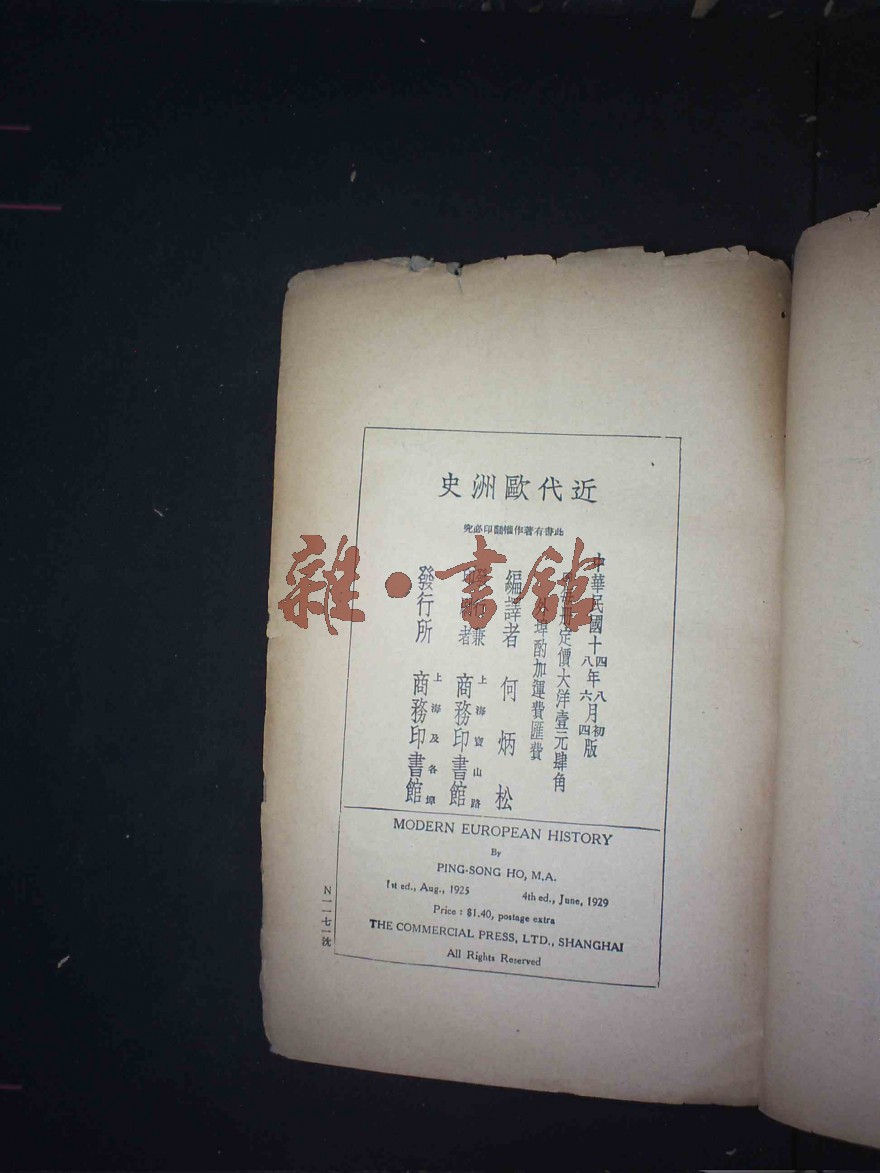 近代歐洲史
此書有著作權翻印必究
中華民國十四年八月初版
八年六月四版
每冊定價大洋壹元肆角
外埠酌加運費匯費
編譯者 何炳松
發行兼印刷者 上海寶山路 商務印書館
發行所 上海及各埠 商務印書館
雜·書館
MODERN EUROPEAN HISTORY
By
PING-SONG HO, M.A.
1st ed., Aug., 1925 4th ed., June, 1929
Price : $1.40, postage extra
THE COMMERCIAL PRESS, LTD., SHANGHAI
All Rights Reserved
N一一七一沈